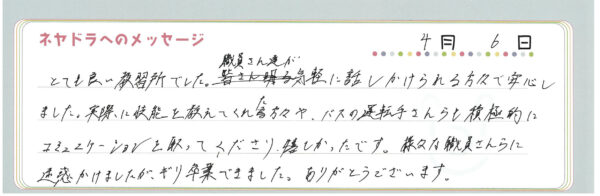 ネヤドラへのメッセージ
4月 6日
職員さん達が
とても良い教習所でした。気軽に話しかけられる方々で安心し
ました。実際に技能を教えてくれた方々や、バスの運転手さんらも積極的に
コミュニケーションを取ってくださり、嬉しかったです。様々な職員さんらに
迷惑かけましたが、ギリ卒業できました。ありがとうございます。